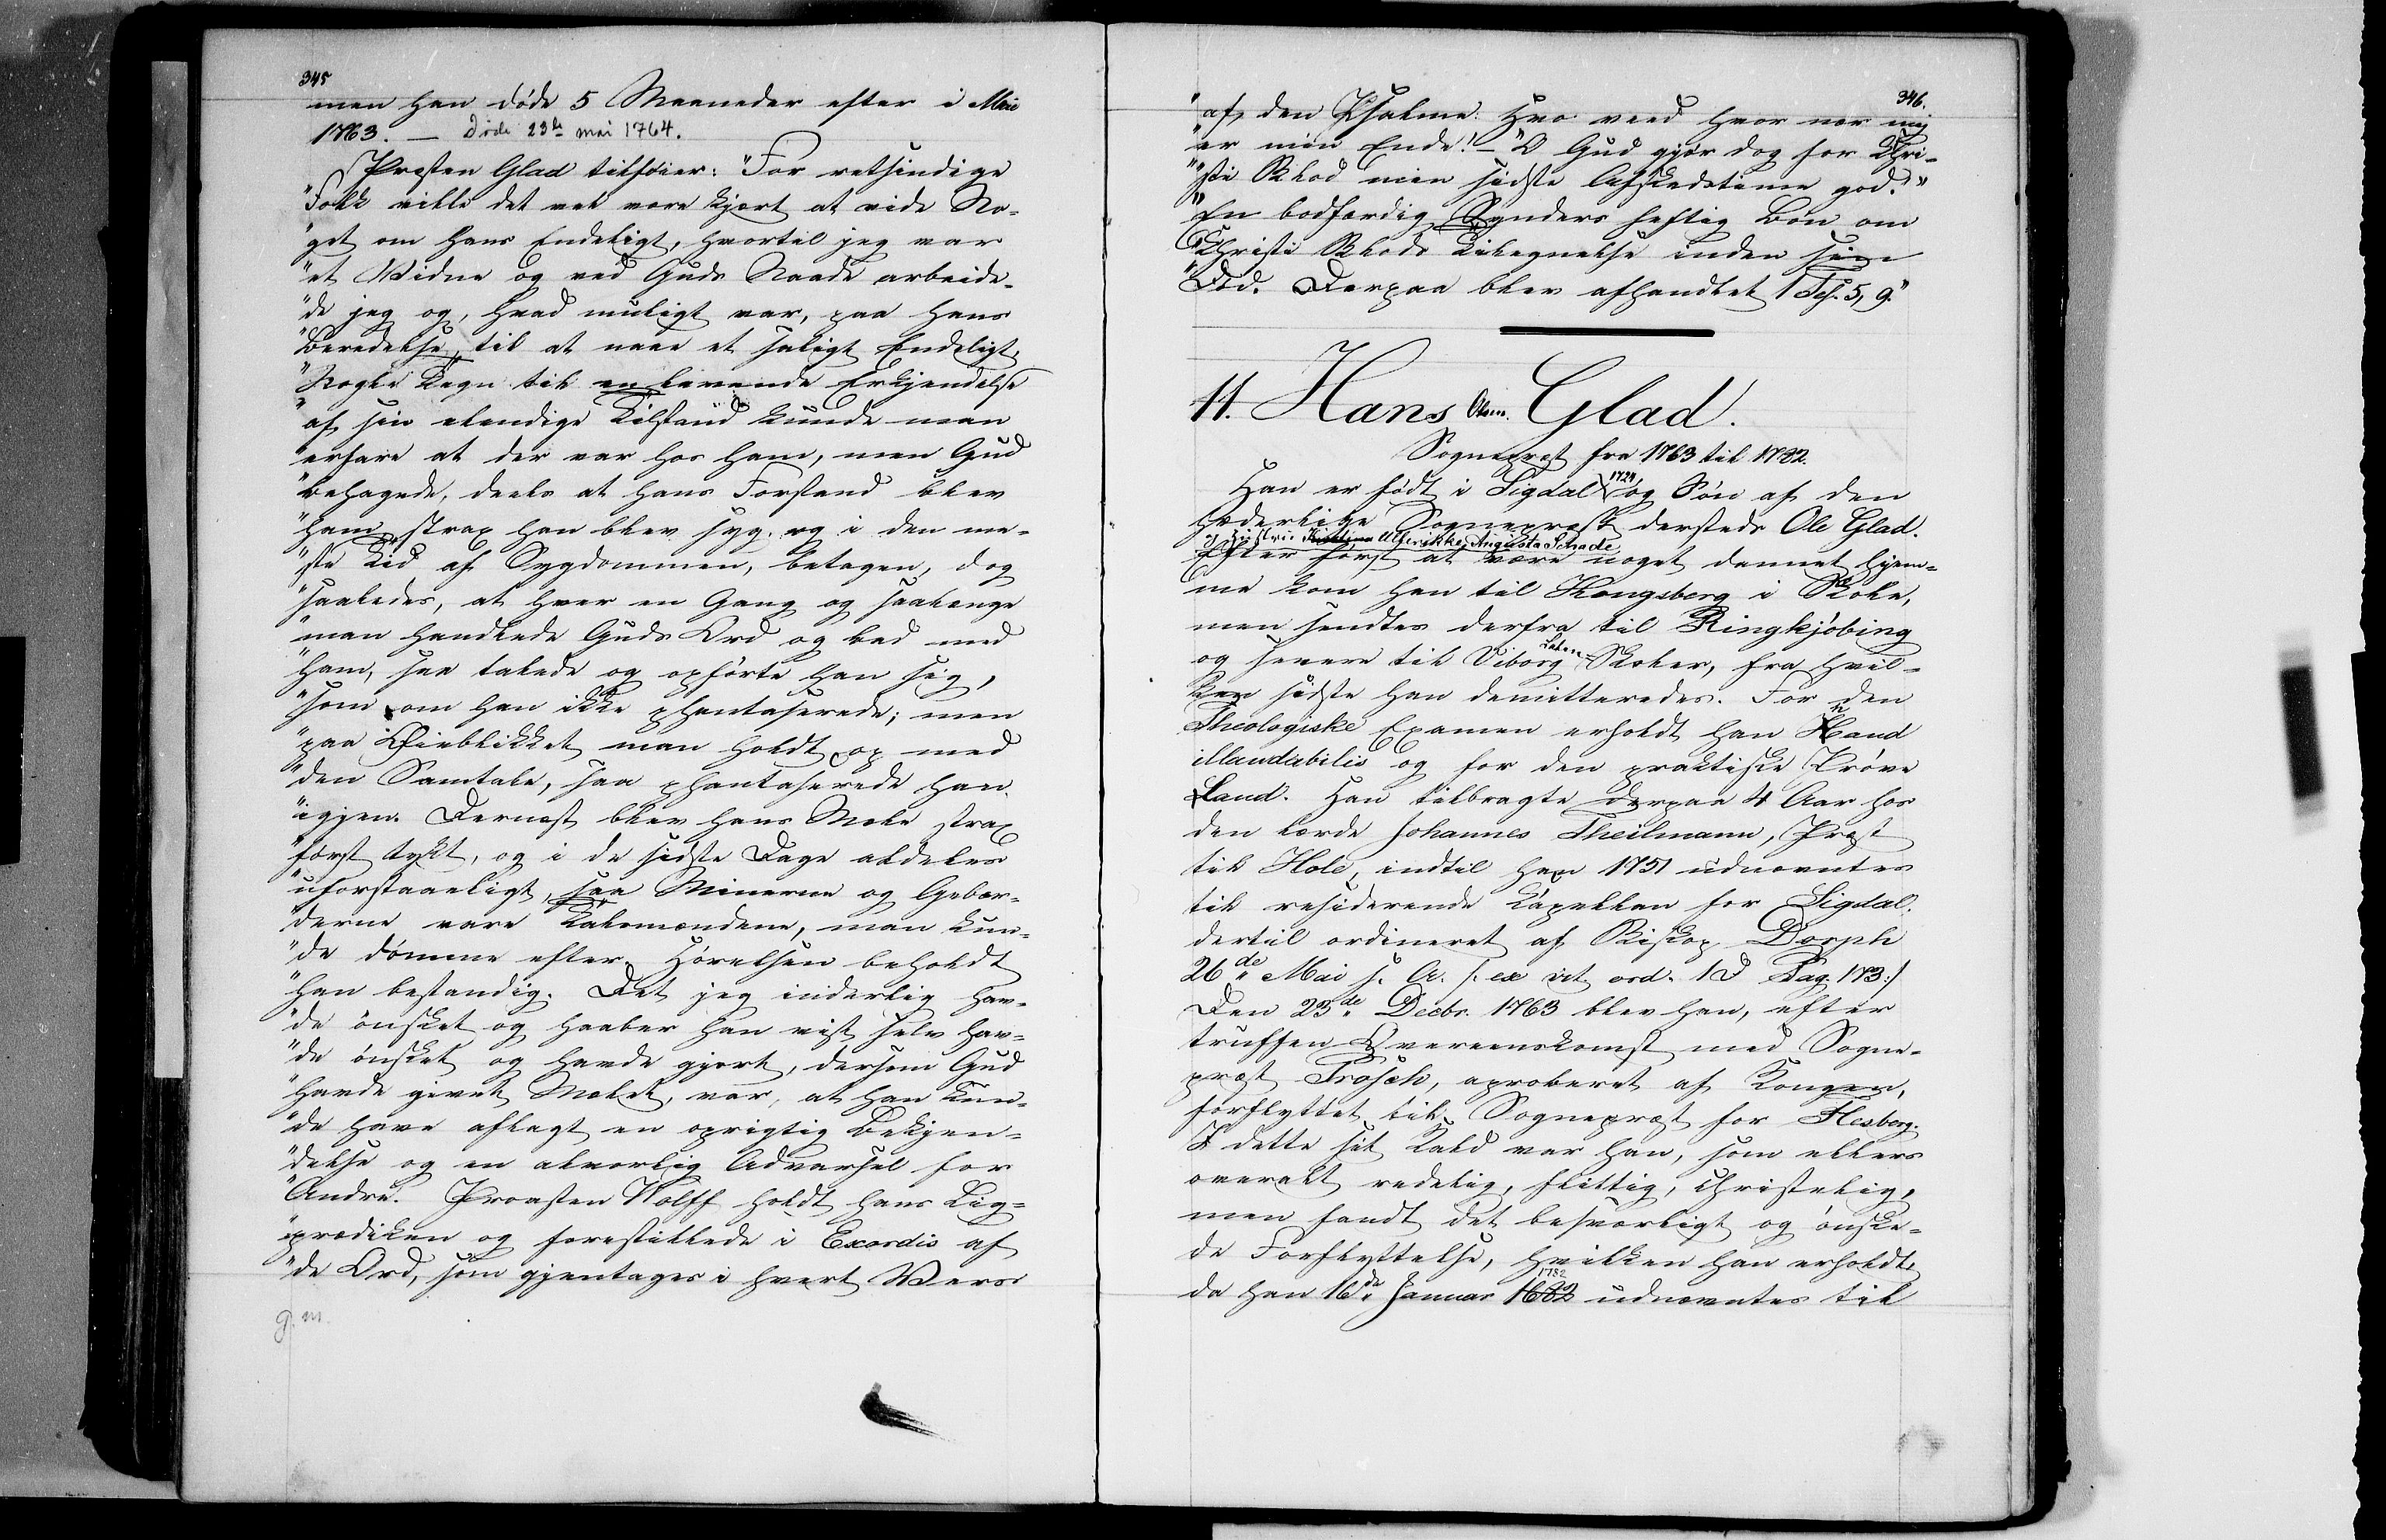 345
men han døde 5 Maaneder efter i Mai
1763. — Døde 23de mai 1764.
Præsten Glad tilføier: "For retsindige
"Folk vilde det vel være kjært at vide No-
"get om hans Endeligt, hvortil jeg var
"et Vidne og ved Guds Naade arbeide-
"de jeg og, hvad muligt var, paa hans
"Beredelse, til at naae et saligt Endeligt.
"Nogle Tegn til en levende Erkjendelse
"af sin elendige Tilstand kunde man
"erfare at der var hos ham, men Gud
"behagede, deels at hans Forstand blev
"ham, strax han blev syg, og i den me-
"ste Tid af Sygdommen, betagen, dog
"saaledes, at hver en Gang og saalænge
"man handlede Guds Ord og bad med
"ham, saa talede og opførte han sig,
"som om han ikke phantaserede; men
"paa Øieblikket man holdt op med
"den Samtale, saa phantaserede han
"igjen. Dernæst blev hans Mæle strax
"først tykt, og i de sidste Dage aldeles
"uforstaaeligt, saa Minerne og Gebær-
"derne vare Talsmændene, man kun-
"de dømme efter. Hørelsen beholdt
"han bestandig. Det jeg inderlig hav-
"de ønsket og haaber han vist selv hav-
"de ønsket og havde gjort, dersom Gud
"havde givet Mælet, var, at han kun-
"de have aflagt en oprigtig Bekjen-
"delse og en alvorlig Advarsel for
"Andre. Provsten Wolff holdt hans Lig-
"prædiken og forestillede i Exordio af
"de Ord, som gjentages i hvert Vers
g. m.
346.
"af den Psalme: Hvo veed hvor nær mig
"er min Ende! — "O Gud gjør dog for Chri-
""sti Blod min sidste Afskedstime god."
"En bodfærdig Synders heftig Bøn om
"Christi Blods Tilegnelse inden sin
"Død. Derpaa blev afhandlet 1 Tes. 5, 9."
11. Hans Olsen. Glad.
Sognepræst fra 1763 til 1782.
Han er født i Sigdal 1724 og Søn af den
hæderlige Sognepræst dersteds Ole Glad.
og Hustru Ulerikke Augusta Schade
Efter først at være noget dannet hjem-
me kom han til Kongsberg i Skole,
men sendtes derfra til Ringkjøbing
og senere til Viborg Latin-Skoler, fra hvil-
ken sidste han demitteredes. For den
Theologiske Examen erholdt han Haud
illaudabilis og for den praktiske Prøve
Laud. Han tilbragte derpaa 4 Aar hos
den lærde Johannes Theilmann, Præst
til Hole, indtil han 1751 udnævntes
til residerende Kapellan for Sigdal.
dertil ordineret af Biskop Dorph
26de Mai s. A. /: ex vit. ord. 1 D Pag. 173:/
Den 23de Decbr. 1763 blev han, efter
truffen Overeenskomst med Sogne-
præst Frosch, aproberet af Kongen,
forflyttet til Sognepræst for Flesberg.
I dette sit Kald var han, som ellers
overalt redelig, flittig, christelig,
men fandt det besværligt og ønske-
de Forflyttelse, hvilken han erholdt,
da han 16de Januar 1682 1782 udnævntes til